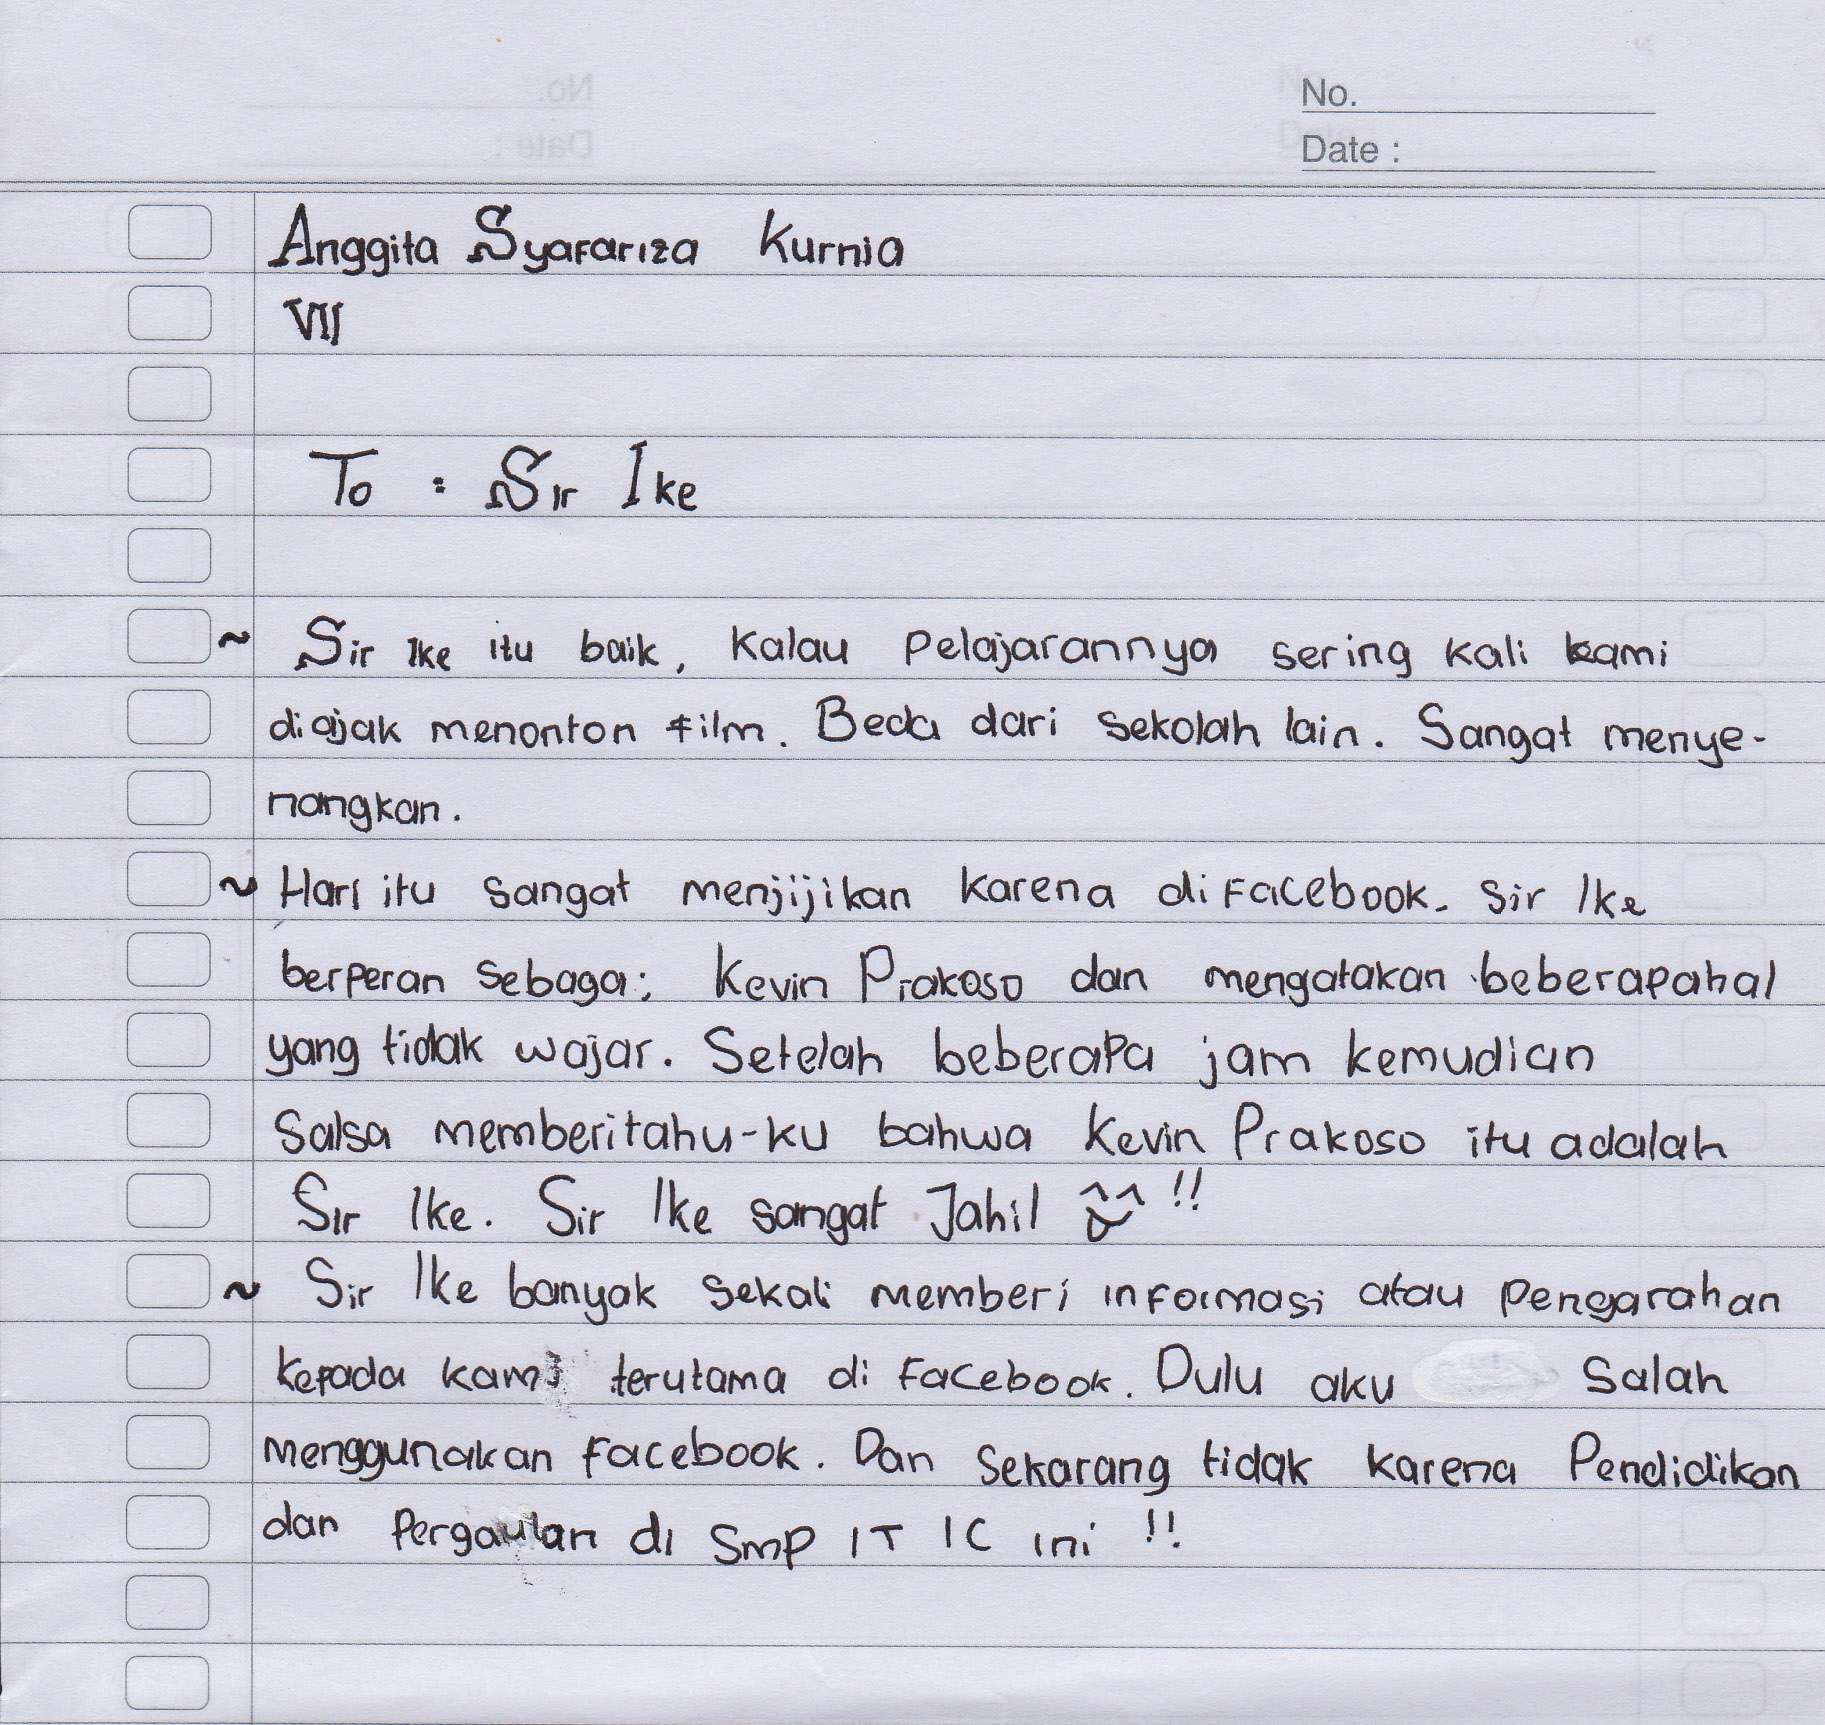 No.
Date :
Anggita Syafariza Kurnia
VII
To : Sir Ike
~ Sir Ike itu baik, Kalau Pelajarannya sering kali kami
diajak menonton film. Beda dari Sekolah lain. Sangat menye-
nangkan.
~ Hari itu sangat menjijikan karena di Facebook. Sir Ike
berperan sebagai Kevin Prakoso dan mengatakan beberapahal
yang tidak wajar. Setelah beberapa jam kemudian
Salsa memberitahu-ku bahwa Kevin Prakoso itu adalah
Sir Ike. Sir Ike sangat Jahil !!
~ Sir Ike banyak sekali memberi informasi atau pengarahan
kepada kami terutama di Facebook. Dulu aku Salah
menggunakan facebook. Dan Sekarang tidak karena Pendidikan
dan Pergaulan di Smp IT IC ini !!